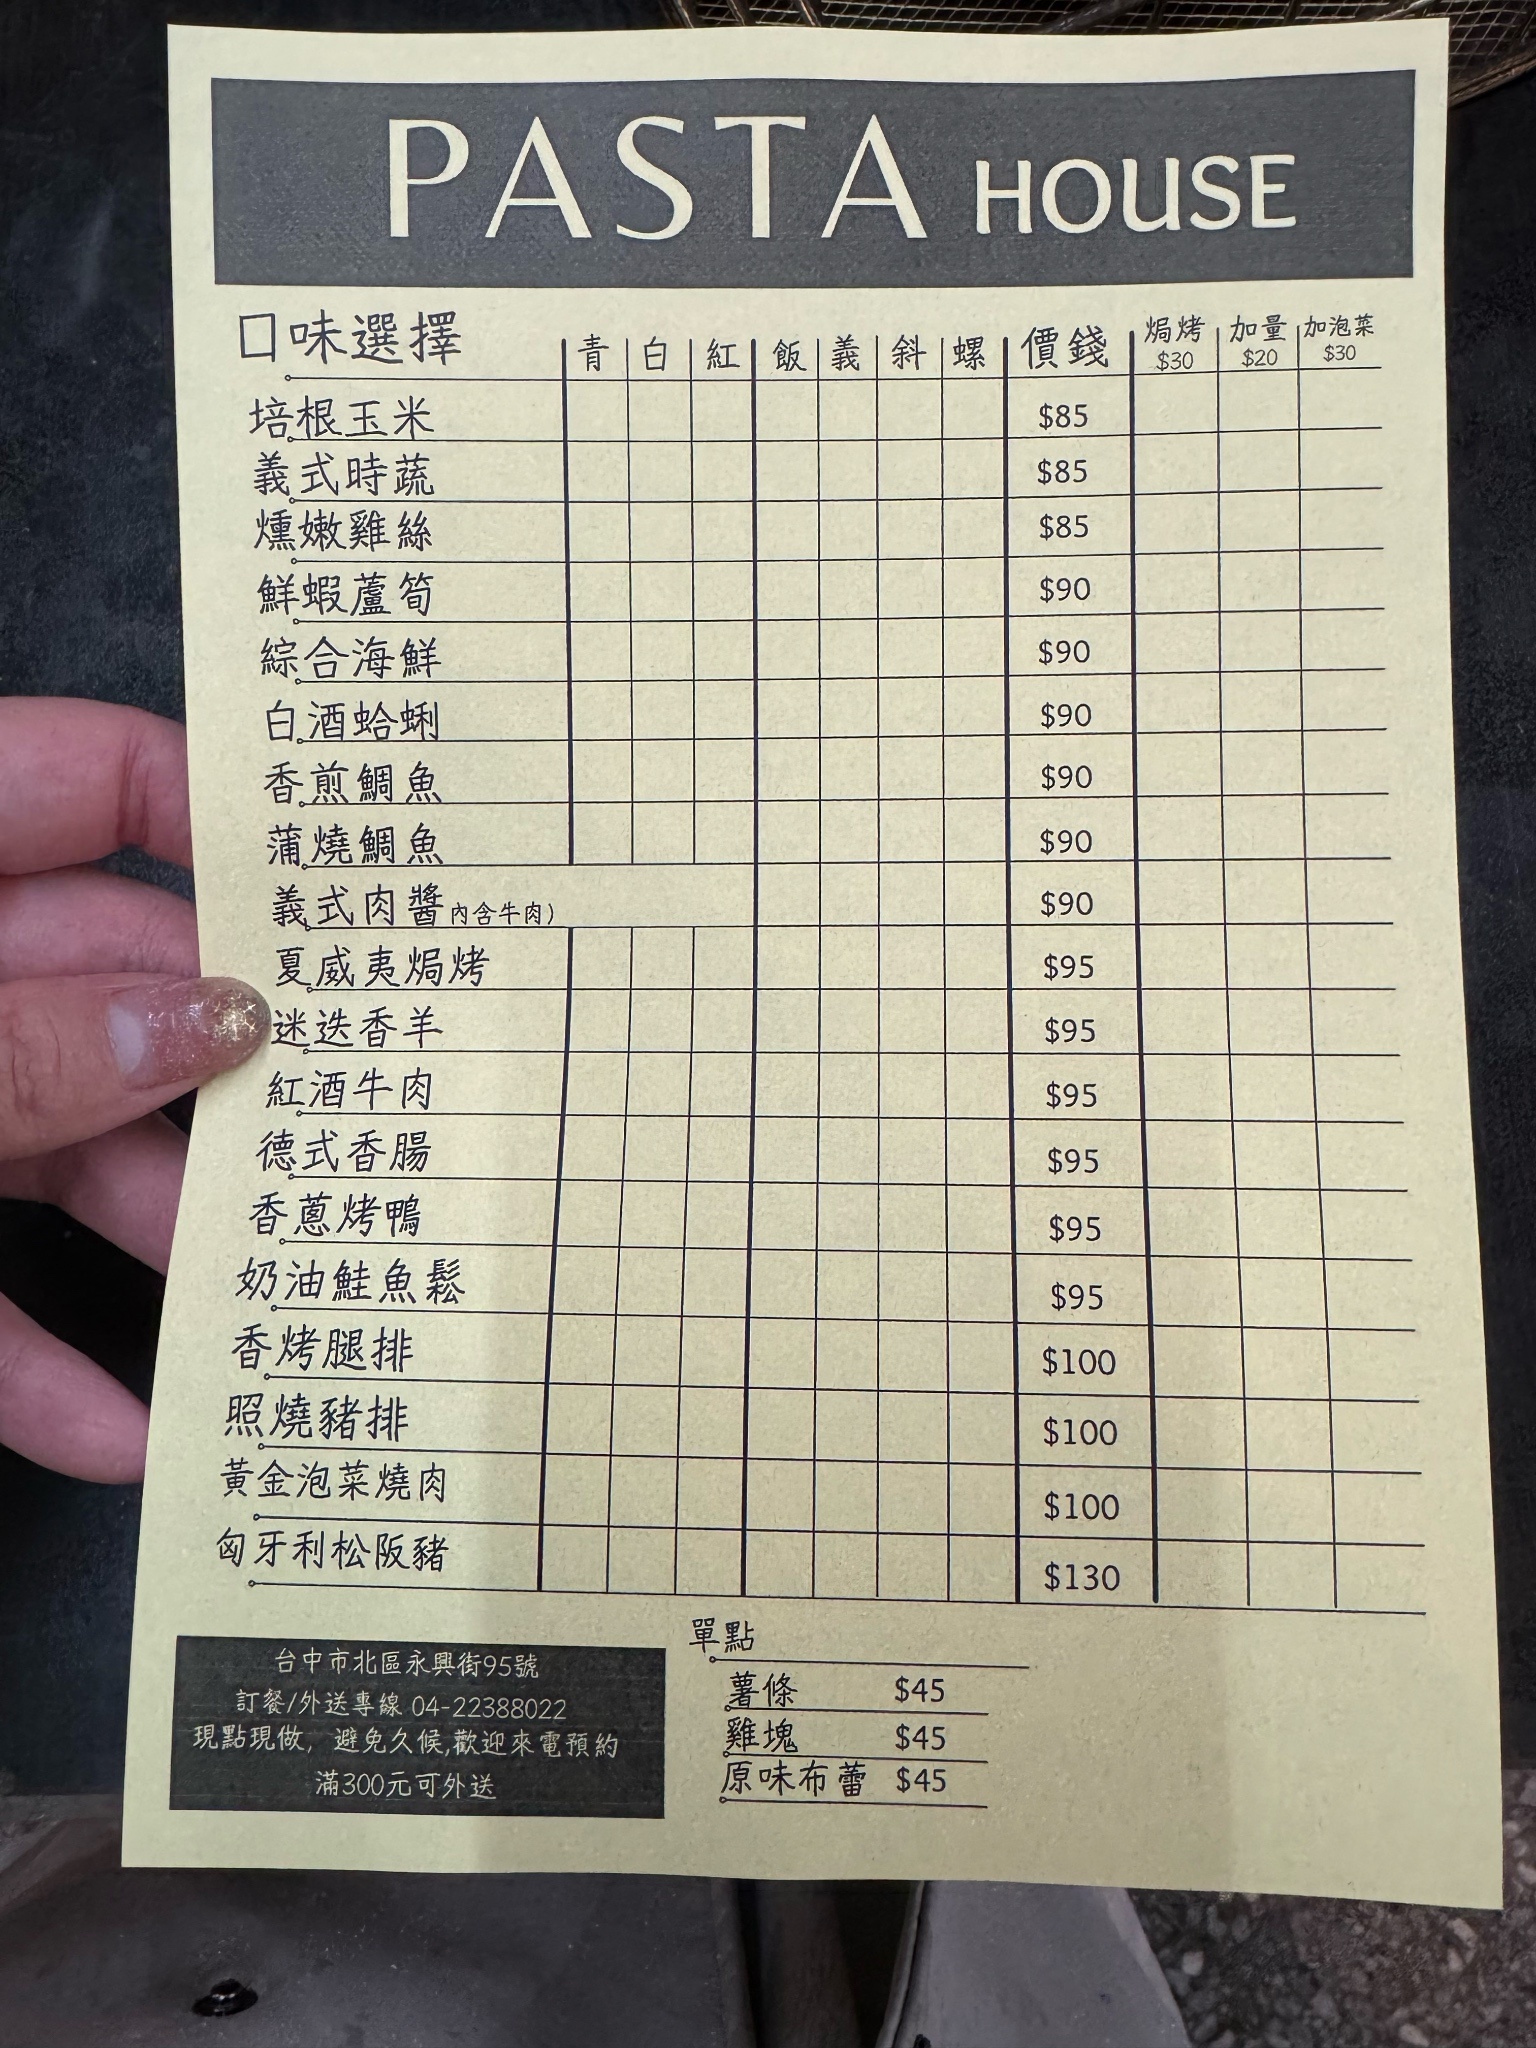 PASTA HOUSE
口味選擇 青 白 紅 飯 義 斜 螺 價錢 焗烤 $30 加量 $20 加泡菜 $30
培根玉米 $85
義式時蔬 $85
燻嫩雞絲 $85
鮮蝦蘆筍 $90
綜合海鮮 $90
白酒蛤蜊 $90
香煎鯛魚 $90
蒲燒鯛魚 $90
義式肉醬內含牛肉) $90
夏威夷焗烤 $95
迷迭香羊 $95
紅酒牛肉 $95
德式香腸 $95
香蔥烤鴨 $95
奶油鮭魚鬆 $95
香烤腿排 $100
照燒豬排 $100
黃金泡菜燒肉 $100
匈牙利松阪豬 $130
台中市北區永興街95號
訂餐/外送專線 04-22388022
現點現做，避免久候,歡迎來電預約
滿300元可外送
單點
薯條 $45
雞塊 $45
原味布蕾 $45